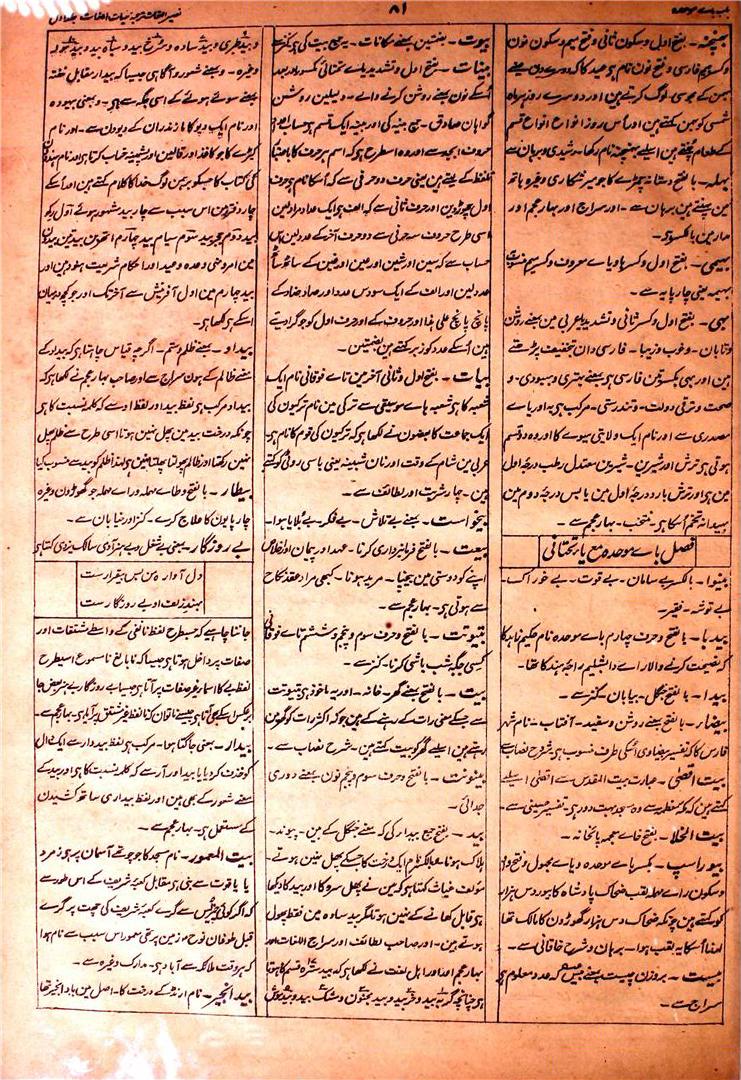 باب بائے موحدہ
۸۱
نصیر اللغات ترجمہ غیاث اللغات جلد اول
بہمنجنہ۔ بفتح اول و سکون ثانی و فتح میم و سکون نون
و کسر جیم فارسی و فتح نون نام
شمسی کو بہمن کہتے ہین اور اس روز انواع انواع قسم
کے طعام پکتے ہین اسلیے بہمنجنہ نام رکھا۔ رشیدی و برہان سے
بہلہ۔ بالفتح دستانہ چمڑے کا جو میر شکاری وغیرہ ہاتھ
مین پہنتے ہین برہان سے۔ اور سراج اور بہار عجم اور
مدار مین بالکسر ہے۔
بہیمی۔ بفتح اول و کسر ہا و یاے معروف و کسر میم منسوب
بہیمہ یعنی چارپایہ سے۔
بہی۔ بفتح اول و کسر ثانی و تشدید یا عربی مین بمعنے روشن
و تابان۔ و خوب و زیبا۔ فارسی دان بتخفیف پڑھتے
ہین اور بہی بکسرتین فارسی ہے بمعنے بہتری و بہبودی۔ و
صحت و ترقی دولت۔ و تندرستی۔ مرکب بہ اور یاے
مصدری سے اور نام ایک ولایتی میوے کا اور وہ دو قسم
ہوتی ہے ترش اور شیرین۔ شیرین معتدل رطب درجہ اول
مین ہے اور ترش بارد درجہ اول مین یابس درجہ دوم مین
بہیدانہ تخم اسکا ہے۔ منتخب۔ بہار عجم سے۔
فصل باے موحدہ مع یاے تحتانی
بینوا۔ بالکسر بے سامان۔ بے قوت۔ بے خوراک۔
بے توشہ۔ فقیر۔
بیدبا۔ بالفتح و حرف چہارم باے موحدہ نام حکیم
کہ نصیحت کرنے والا راے دابشلیم راجہ ہند کا تھا۔
بیدا۔ بالفتح جنگل۔ بیابان۔ کنز سے۔
بیضاء۔ بالفتح بمعنے روشن و سفید۔ آفتاب۔ نام شہر
فارس کا کہ تفسیر بیضاوی اسکی طرف منسوب ہے شروح نصاب سے
بیت اقصی۔ عبارت بیت المقدس سے اقصی اسلیے
کہتے ہین کہ مکہ معظمہ سے وہ مسجد بہت دور ہے۔ تفسیر حسینی سے۔
بیت الخلا۔ بفتح خاے معجمہ پائخانہ۔
بیوراسپ۔ بکسر باے موحدہ و یاے مجہول و فتح واو
و سکون راے مہملہ لقب ضحاک پادشاہ کا بیور دس ہزار
کو کہتے ہین چونکہ ضحاک دس ہزار گھوڑون کا مالک تھا
لہذا اسکا یہ لقب ہوا۔ برہان و شرح خاقانی سے۔
بیست۔ بروزن چیست بمعنے بیس کہ عدد معلوم ہے
سراج سے۔
بیوت۔ بضمتین بمعنے مکانات۔ یہ جمع بیت کی ہے کنز سے
بینات۔ بفتح اول و تشدید یاے تحتانی مکسور اور بعد
اسکے نون بمعنے روشن کرنے والے۔ و دلیلین روشن
گواہان صادق۔ جمع بینہ کی اور بینہ ایک قسم ہے حساب
حروف ابجد سے اور وہ اسطرح ہے کہ اسم ہر حرف کا باعتبار
تلفظ کے لیتے ہین یعنی حرف دو حرفی سے کہ اسکا نام ہے حرف
اول چھوڑین اور حرف ثانی سے کہ الف ہے ایک عدد مراد لین
اسی طرح حروف سہ حرفی سے دو حرف آخر کے عدد لین
حساب سے کہ سین اور شین اور عین اور غین کے ساٹھ
عدد لین اور الف کے ایک سو دس عدد اور صاد ضاد کے
پانچ پانچ علی ہذا اور حروف کے اور حرف اول کو جو گرا دیتے
ہین اسکے عدد کو زبر کہتے ہین بضمتین۔
بیات۔ بفتح اول و ثانی آخر مین تاے فوقانی نام ایک
شعبہ کا ہے شعبہ ہاے موسیقی سے ترکی مین نام ترکون کی
ایک جماعت کا بعضون نے لکھا ہے کہ ترکون کی قوم کا نام ہے۔
عربی مین شام کے وقت اور نان شبینہ یعنی باسی روٹی کو کہتے
ہین۔ بہار شربت اور لطائف سے۔
بیخواست۔ بمعنے بے تلاش۔ بے فکر۔ بے بلایا ہوا۔
بیعت۔ بالفتح فرمانبرداری کرنا۔ عہد اور پیمان اور اخلاص
اپنے کو دوستی مین بیچنا۔ مرید ہونا۔ کبھی مراد عقد نکاح
سے ہوتی ہے۔ بہار عجم سے۔
بیتوتت۔ بالفتح و حرف سوم و پنجم و ششم تاے فوقانی
کسی جگہ شب باشی کرنا۔ کنز سے۔
بیت۔ بالفتح بمعنے گھر۔ خانہ۔ اور یہ ماخوذ ہے بیتوتت
سے جسکے معنی رات کے رہنے کے ہین چونکہ اکثر رات کو گھر مین
رہتے ہین اسلیے گھر کو بیت کہتے ہین۔ شرح نصاب سے۔
بینونت۔ بالفتح و حرف سوم و پنجم نون بمعنے دوری
جدائی۔
بید۔ بفتح جمع بیدار کی کہ بمعنے جنگل کے ہین۔ پیوند۔
ہلاک ہونا۔ بالکسر نام ایک درخت کا جسکے پھل نہین ہوتے۔
مؤلف غیاث کہتا ہے کہ مین نے پھل سرو کا اور بید کا دیکھا
ہے قابل کھانے کے نہین ہوتا مگر بید سادہ مین فقط پھول
ہوتے ہین۔ اور صاحب لطائف اور سراج اللغات اور
بہار عجم اور اور اہل لغت نے لکھا ہے کہ بید سترہ قسم کا ہوتا
ہے چنانچہ گربہ بید و خر بید و بید مجنون و مشک بید و بید موش
و بید طبری و بید سادہ و سرخ بید و سیاہ بید و بید
وغیرہ۔ و بمعنے شعور و آگاہی جیسا کہ بیدار مقابل خفتہ
بمعنے سوئے ہوئے کے اسی جگہ سے ہے۔ و بمعنی بیہودہ
اور نام ایک دیو کا مازندران کے دیوون سے۔ اور نام
کیڑے کا جو کاغذ اور قالین اور پشمینہ خراب کرتا ہے اور نام ہندؤن
کی کتاب کا جسکو برہمن لوگ خدا کا کلام کہتے ہین اور اسکے
چار دفتر ہین اس سبب سے چار بید مشہور ہوئے اول رگ
بید دوم یجر بید سوم سیام بید چہارم اتھربن بید تین بیدون
مین امر و نہی وعدہ و وعید اور احکام شریعت ہنود ہین اور
بید چہارم مین اول آفرینش سے آخر تک اور جو کچھ درمیان
اسکے ہے لکھا ہے۔
بیداد۔ بمعنے ظلم و ستم۔ اگرچہ قیاس چاہتا ہے کہ بیداد کے
معنے ظالم کے ہون سراج سے اور صاحب بہار عجم نے لکھا ہے کہ
بیداد مرکب ہے لفظ بید اور لفظ اد سے کہ کلمہ نسبت کا ہے
چونکہ درخت بید مین پھل نہین ہوتا اسی طرح سے ظلم پھل
نہین رکھتا اور ظالم پھولتا پھلتا نہین ہے لہذا ظلم کو بید سے منسوب کیا
بیطار۔ بالفتح و طاے مہملہ و راے مہملہ جو گھوڑون وغیرہ
چارپایون کا علاج کرے۔ کنز اور خیابان سے۔
بے روزگار۔ یعنی بے شغل و بے ہنر آدمی سالک یزدی کہتا ہے
دل آوارۂ من بس بیقرار ست
ببند زلف او بے روزگار ست
جاننا چاہیے کہ جسطرح لفظ نا نفی کے واسطے مشتقات اور
صفات پر داخل ہوتا ہے جیسا کہ نابالغ نامسموع اسیطرح
لفظ بے کا اسماے غیر صفات پر آتا ہے جیسا بے روزگار بے ہنر بعض جا
برعکس اسکے بھی آتا ہے جیسے ناتوان کہ نا لفظ غیر مشتق پر آیا ہے۔ بہار عجم سے۔
بیدار۔ بمعنی جاگتا ہوا۔ مرکب ہے لفظ بیددار سے ایک دال
کو حذف کر دیا یا بید اور آر سے کہ کلمہ نسبت کا ہے اور بید کے
معنے شعور کے بھی ہین اور لفظ بیداری ساتھ کشیدن
کے مستعمل ہے۔ بہار عجم سے۔
بیت المعمور۔ نام مسجد کا جو چوتھے آسمان پر ہے زمرد
یا یاقوت سے بنی ہے مقابل کعبہ شریف کے اس طور سے
کہ اگر کوئی چیز اس سے گرے کعبہ شریف کی چھت پر گرے
قبل طوفان نوح وہ زمین پر تھی معمور اس سبب سے نام ہوا
کہ ہر وقت ملائکہ سے آباد ہے۔ مدارک وغیرہ سے۔
بید انجیر۔ نام ارنڈ کے درخت کا۔ اصل مین باد انجیر تھا